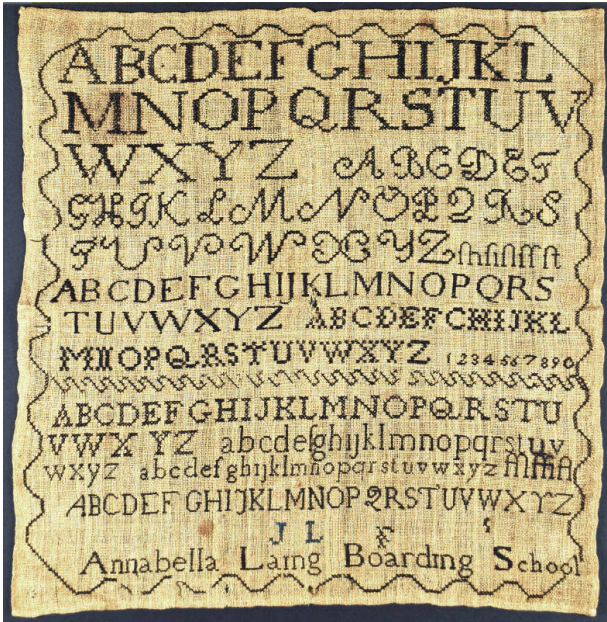 ABCDEFGHIJKL
MNOPQRSTUV
WXYZ ABCDEF
GHIJKLMNOPQRS
TUVWXYZ
ABCDEFGHIJKLMNOPQRS
TUVWXYZ ABCDEFGHIJKL
MNOPQRSTUVWXYZ 1234567890
ABCDEFGHIJKLMNOPQRSTU
VWXYZ abcdefghijklmnopqrstuv
wxyz abcdefghijklmnopqrstuvwxyz
ABCDEFGHIJKLMNOPQRSTUVWXYZ
J L F
Annabella Laing Boarding School